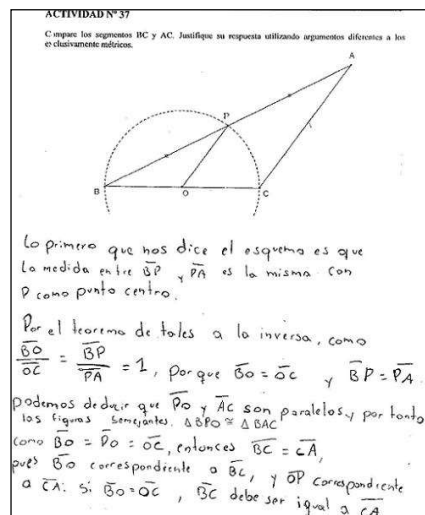 ACTIVIDAD Nº 37
Compare los segmentos BC y AC. Justifique su respuesta utilizando argumentos diferentes a los
exclusivamente métricos.
A
P
B
O
C
Lo primero que nos dice el esquema es que
La medida entre BP y PA es la misma con
P como punto centro.
Por el teorema de tales a la inversa, como
BO/OC = BP/PA = 1, porque BO = OC y BP = PA.
podemos deducir que PO y AC son paralelos y por tanto
las figuras semejantes. △BPO ≅ △BAC
como BO = PO = OC, entonces BC = CA,
pues BO correspondiente a BC, y OP correspondiente
a CA. Si BO = OC, BC debe ser igual a CA